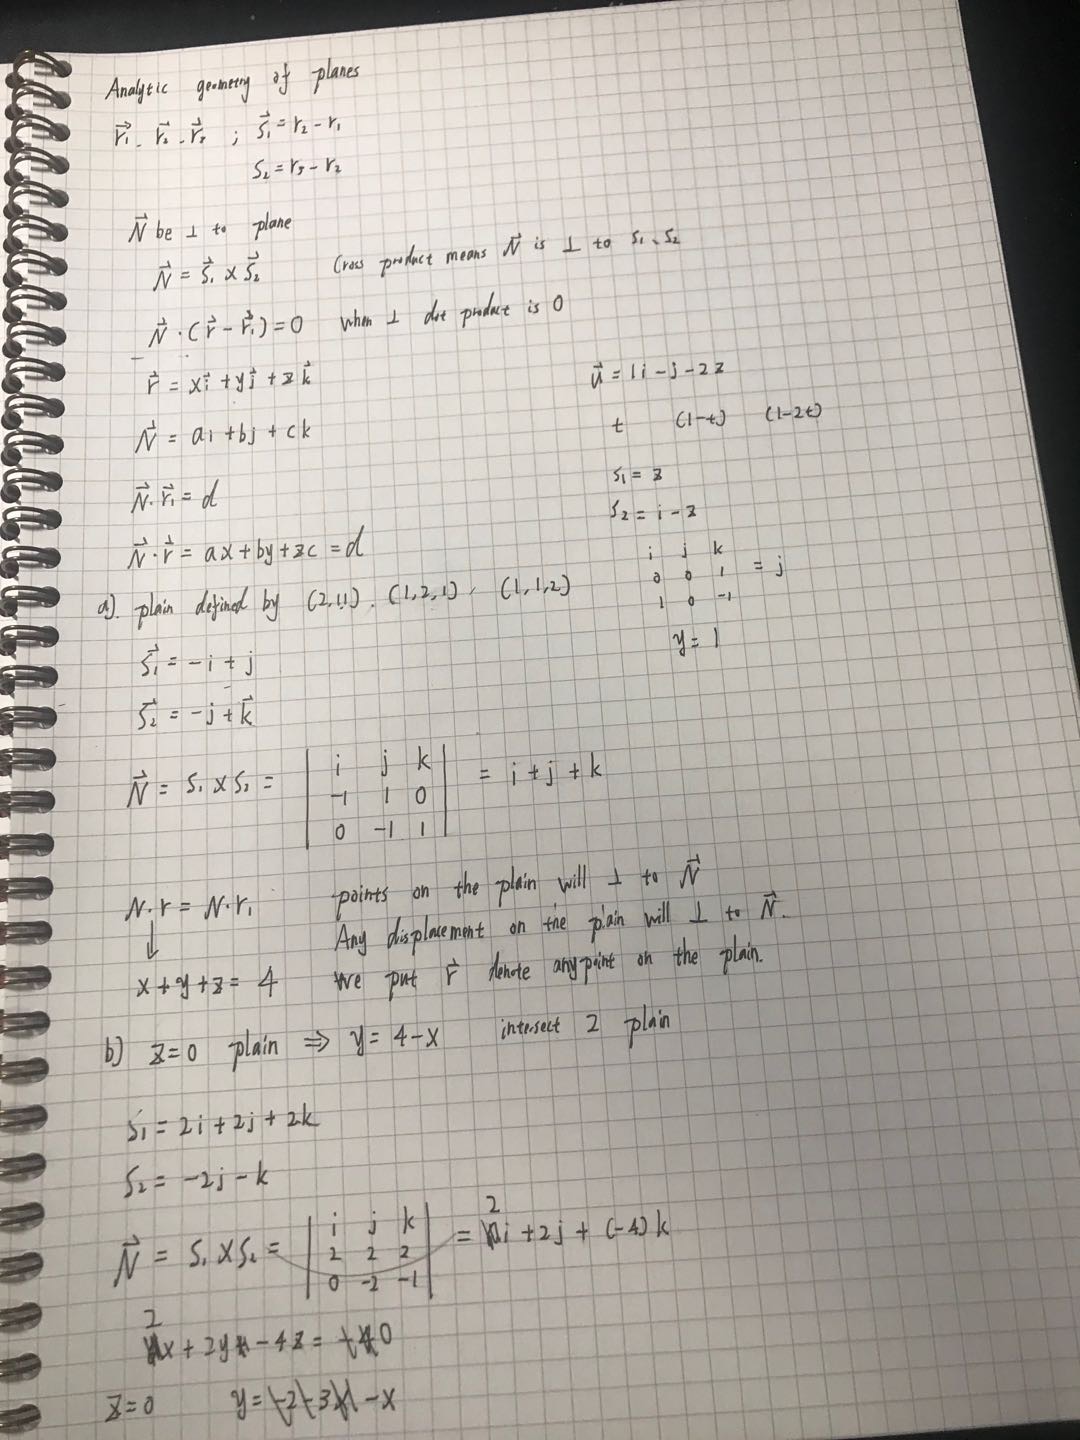 Analytic geometry of planes
r⃗₁. r⃗₂. r⃗₃ ; s⃗₁ = r₂ - r₁
s₂ = r₃ - r₂
N⃗ be ⊥ to plane
N⃗ = s⃗₁ × s⃗₂ Cross product means N⃗ is ⊥ to s₁、s₂
N⃗ · (r⃗ - r⃗₁) = 0 when ⊥ dot product is 0
r⃗ = xi⃗ + yj⃗ + zk⃗
N⃗ = ai + bj + ck
N⃗ · r⃗₁ = d
N⃗ · r⃗ = ax + by + zc = d
u⃗ = 1i - j - 2z
t (1-t) (1-2t)
s₁ = z
s₂ = i - z
i j k
0 0 1 = j
1 0 -1
y = 1
a). plain defined by (2,1,1). (1,2,1), (1,1,2)
s⃗₁ = -i + j
s⃗₂ = -j + k⃗
N⃗ = s₁ × s₂ = | i j k | = i + j + k
-1 1 0
0 -1 1
N·r = N·r₁ points on the plain will ⊥ to N⃗
↓ Any displacement on the plain will ⊥ to N⃗.
x + y + z = 4 We put r⃗ denote any point on the plain.
b) z=0 plain ⇒ y = 4 - x intersect 2 plain
s₁ = 2i + 2j + 2k
s₂ = -2j - k
N⃗ = s₁ × s₂ = | i j k | = 2i + 2j + (-4)k
2 2 2
0 -2 -1
2x + 2y - 4z = 0
z=0 y = -x